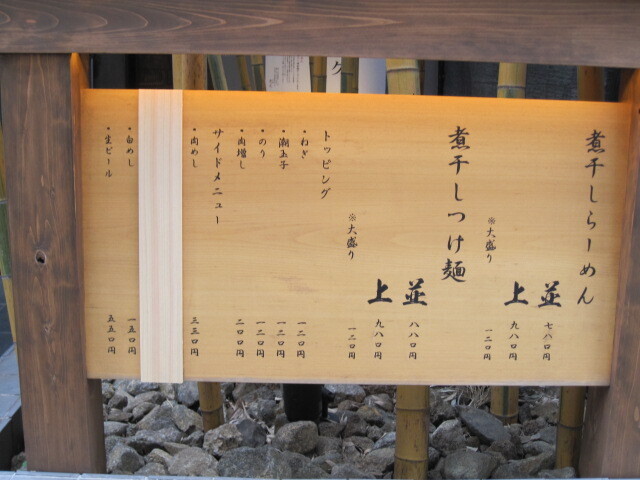 煮干しらーめん
並 七八〇円
上 九八〇円
※大盛り 一二〇円
煮干しつけ麺
並 八八〇円
上 九八〇円
※大盛り 一二〇円
トッピング
・ねぎ 一二〇円
・潮玉子 一二〇円
・のり 一二〇円
・肉増し 二〇〇円
サイドメニュー
・肉めし 三三〇円
・白めし 一五〇円
・生ビール 五五〇円
ク